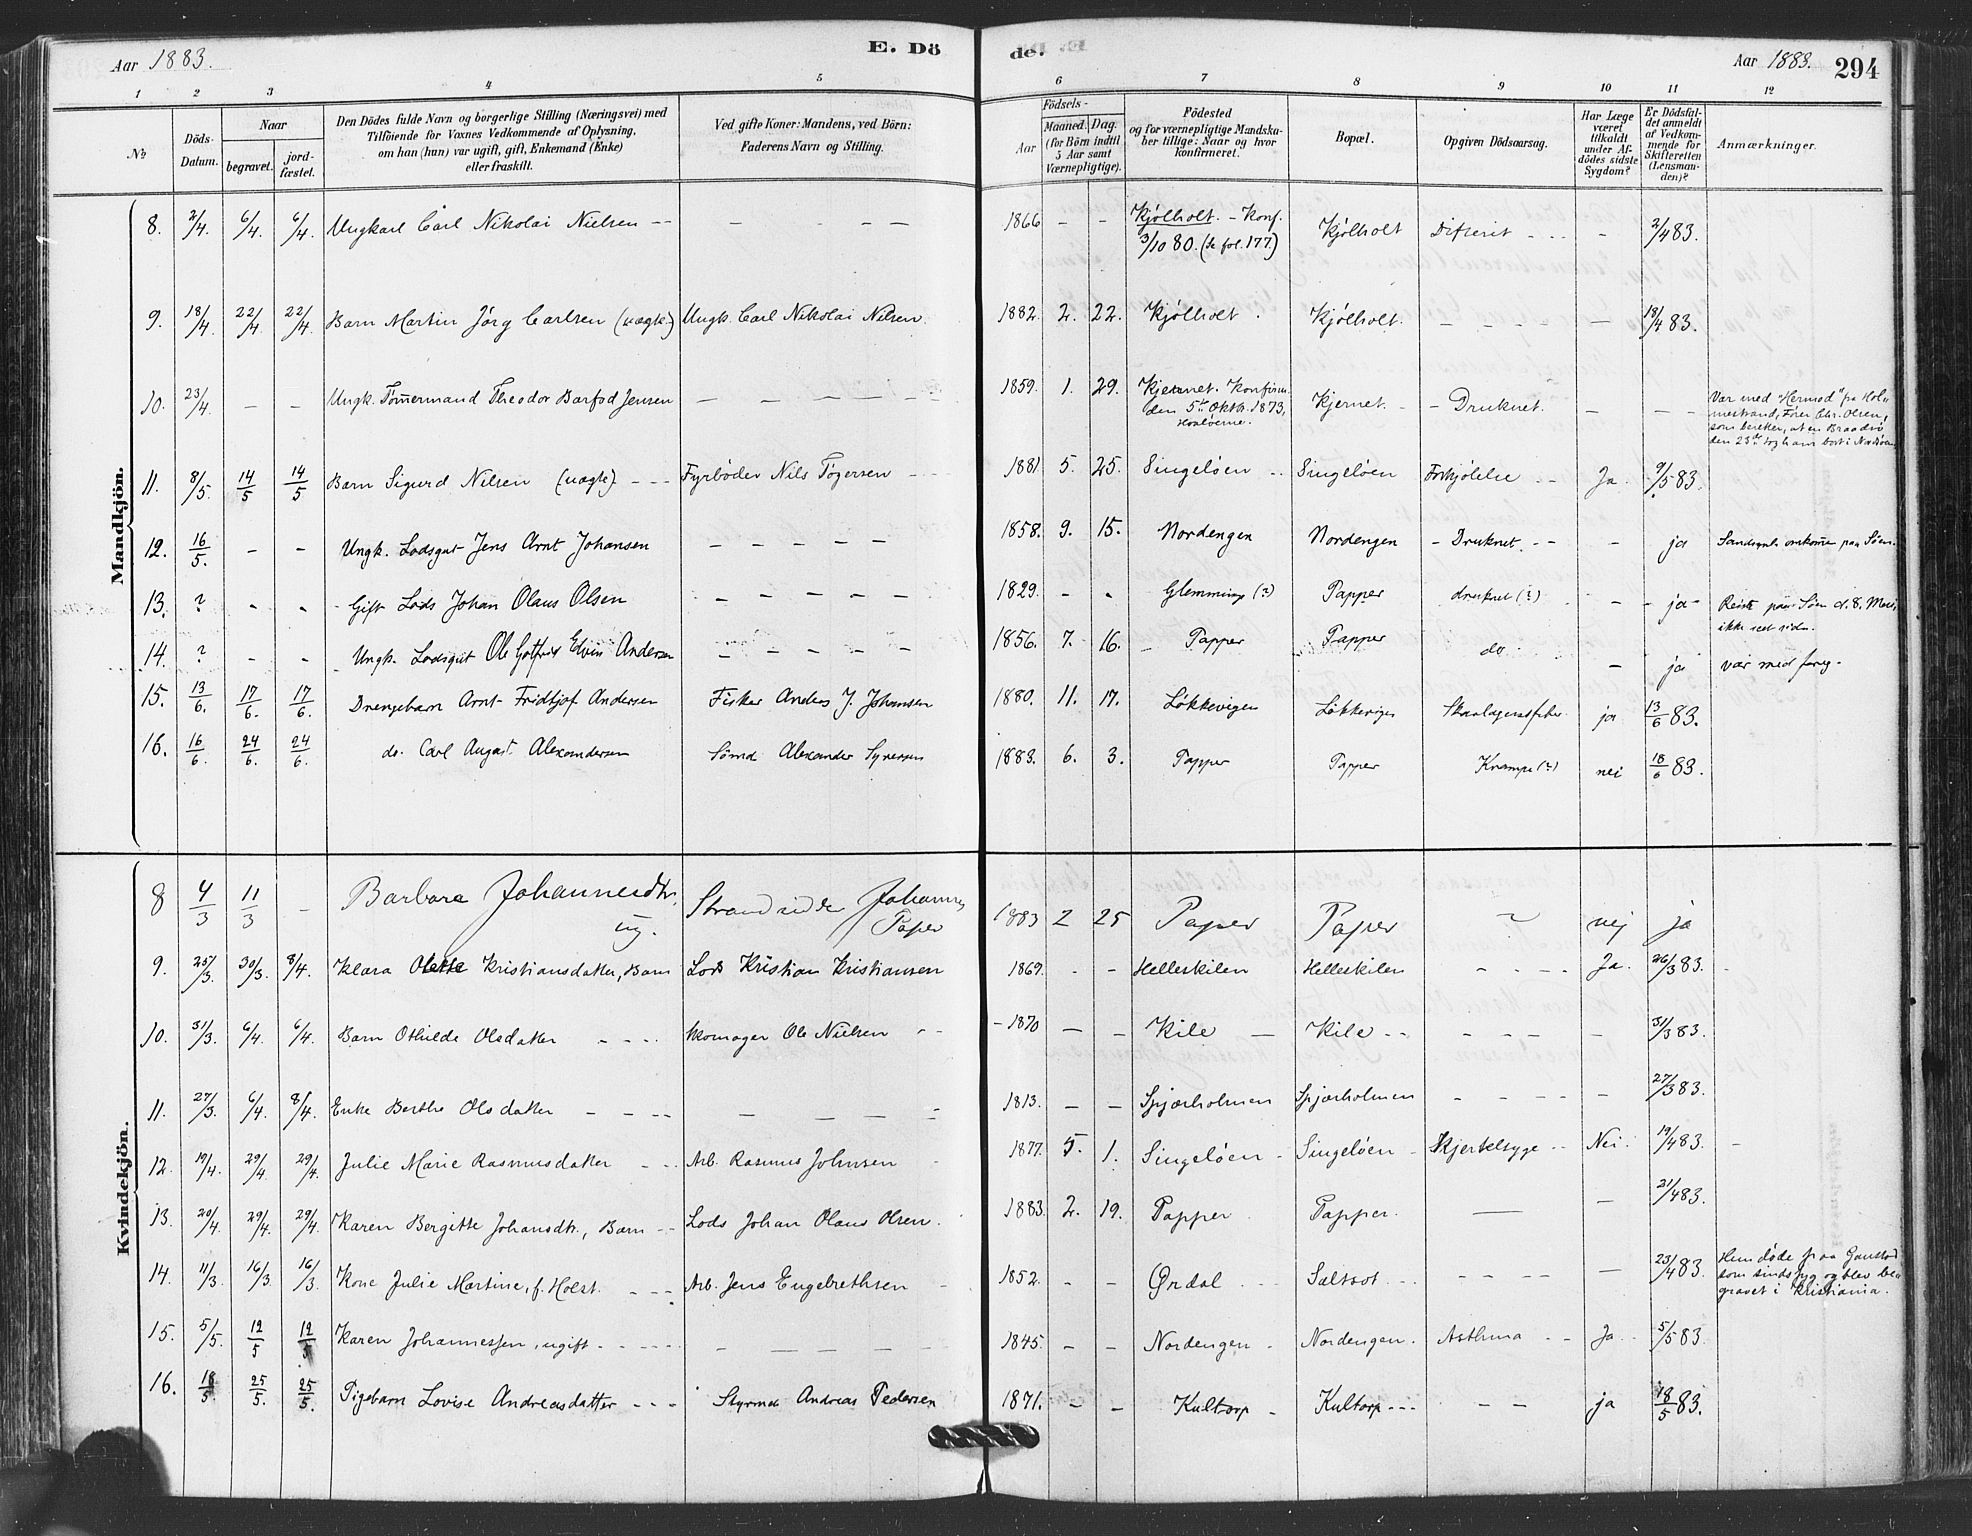 Aar 1883. E. Dö
de. Aar 1883. 294
1 2 3 4 5 6 7 8 9 10 11 12
No
Döds-Datum.
Naar
begravet.
jord-fæstet.
Den Dödes fulde Navn og borgerlige Stilling (Næringsvei) med
Tilföiende for Voxnes Vedkommende af Oplysning,
om han (hun) var ugift, gift, Enkemand (Enke)
eller fraskilt.
Ved gifte Koner: Mandens, ved Börn:
Faderens Navn og Stilling.
Födsels-
Aar
Maaned. Dag.
(for Börn indtil
5 Aar samt
Værnepligtige).
Födested
og for værnepligtige Mandska-
ber tillige: Naar og hvor
konfirmeret.
Bopæl.
Opgiven Dödsaarsag.
Har Læge
været
tilkaldt
under Af-
dödes sidste
Sygdom?
Er Dödsfal-
det anmeldt
af Vedkom-
mende for
Skifteretten
(Lensman-
den)?
Anmærkninger.
Mandkjön.
8. 2/4. 6/4. 6/4. Ungkarl Carl Nikolai Nielsen -- — — - — — 1866 - - Kjölholt. - Konf. 3/10 80. (se fol. 177.) Kjölholt Difterit - - - - 2/4 83.
9. 18/4. 22/4. 22/4. Barn Martin Jörg Carlsen (uægte.) Ungk. Carl Nikolai Nilsen. 1882. 2. 22. Kjölholt. Kjölholt. - - - - — 18/4 83.
10. 23/4. - - Ungk. Tömmermand Theodor Barfod Jensen — — — — — 1859. 1. 29. Kjernet. Konfirm. den 5te Oktbr. 1873, Hvalöerne. Kjernet. - Druknet. - - - Var med "Hermod" fra Hol-
mestrand, Förer Chr. Olsen,
som beretter, at en Braadsö
den 23de tog ham bort i Nordsöen
11. 8/5. 14/5 14/5 Barn Sigurd Nilsen (uægte). - - - Fyrböder Nils Tögersen - - - 1881. 5. 25. Singelöen - - Singelöen Forkjölelse -- Ja. 9/5 83.
12. 16/5. - - Ungk. Lodsgut Jens Arnt Johansen - - - - - 1858. 9. 15. Nordengen Nordengen - Druknet. - - - ja Sandsynl. omkomne paa Söen.
13. ? - - Gift Lods Johan Olaus Olsen - - - - - 1829. - - Glemminge (?) Papper druknet (?) - - ja - Reiste paa Söen d. 8. Mai,
ikke seet siden.
14. ? - - Ungk. Lodsgut Ole Gotfred Edvin Andersen - - - - - 1856. 7. 16. Papper Papper do - ja var med foreg.
15. 13/6. 17/6. 17/6. Drengebarn Arnt Fridtjof Andersen Fisker Anders J. Johansen 1880. 11. 17. Lökkevigen Lökkevigen Skarlagensfeber ja 13/6 83.
16. 16/6 24/6. 24/6. do. Carl August Alexandersen Sömd Alexander Syversen 1883. 6. 3. Papper Papper Krampe (?) nei 18/6 83.
Kvindekjön.
8 4/3 11/3 - Barbara Johannesdtr. ug. Strandsidder Johannes Paper 1883 2 25 Paper Paper ? nej ja
9. 25/3. 30/3. 8/4. Klara Olette Kristiansdatter, Barn Lods Kristian Kristiansen 1869. - - Helleskilen Helleskilen - - - - Ja. 26/3 83. -
10. 31/3. 6/4. 6/4. Barn Othilde Olsdatter - - - - Skomager Ole Nielsen - - 1870 — — Kile — Kile -- - - - - - 31/3 83.
11. 27/3. 6/4. 8/4. Enke Berthe Olsdatter - - - - — — — - 1813. - - Spjærholmen Spjærholmen - - - - - 27/3 83.
12. 19/4. 29/4 29/4. Julie Marie Rasmusdatter - - - Arb. Rasmus Johnsen 1877. 5. 1. Singelöen - Singelöen - Kjertelsyge - - Nei. 19/4 83. -
13. 20/4. 29/4. 29/4. Karen Bergitte Johansdtr., Barn -- Lods Johan Olaus Olsen. 1883. 2. 19. Papper Papper. — — 21/4 83.
14. 11/3. 16/3 16/3. Kone Julie Martine, f. Holst. - - - Arb. Jens Engebrethsen 1852. - - Ørdal - - Saltrot - - - - - - — 23/4 83. Hun døde paa Gaustad
som sindssyg og blev be-
gravet i Kristiania.
15. 5/5 12/5 12/5 Karen Johannessen, ugift - - - - - - — — — - 1845. - - Nordengen - Nordengen. Asthma - - Ja. 5/5 83.
16. 18/5. 25/5. 25/5. Pigebarn Lovise Andreasdatter - - - Styrmd Andreas Pedersen 1871. - - Kultorp - Kultorp - - - - - ja 18/5 83.